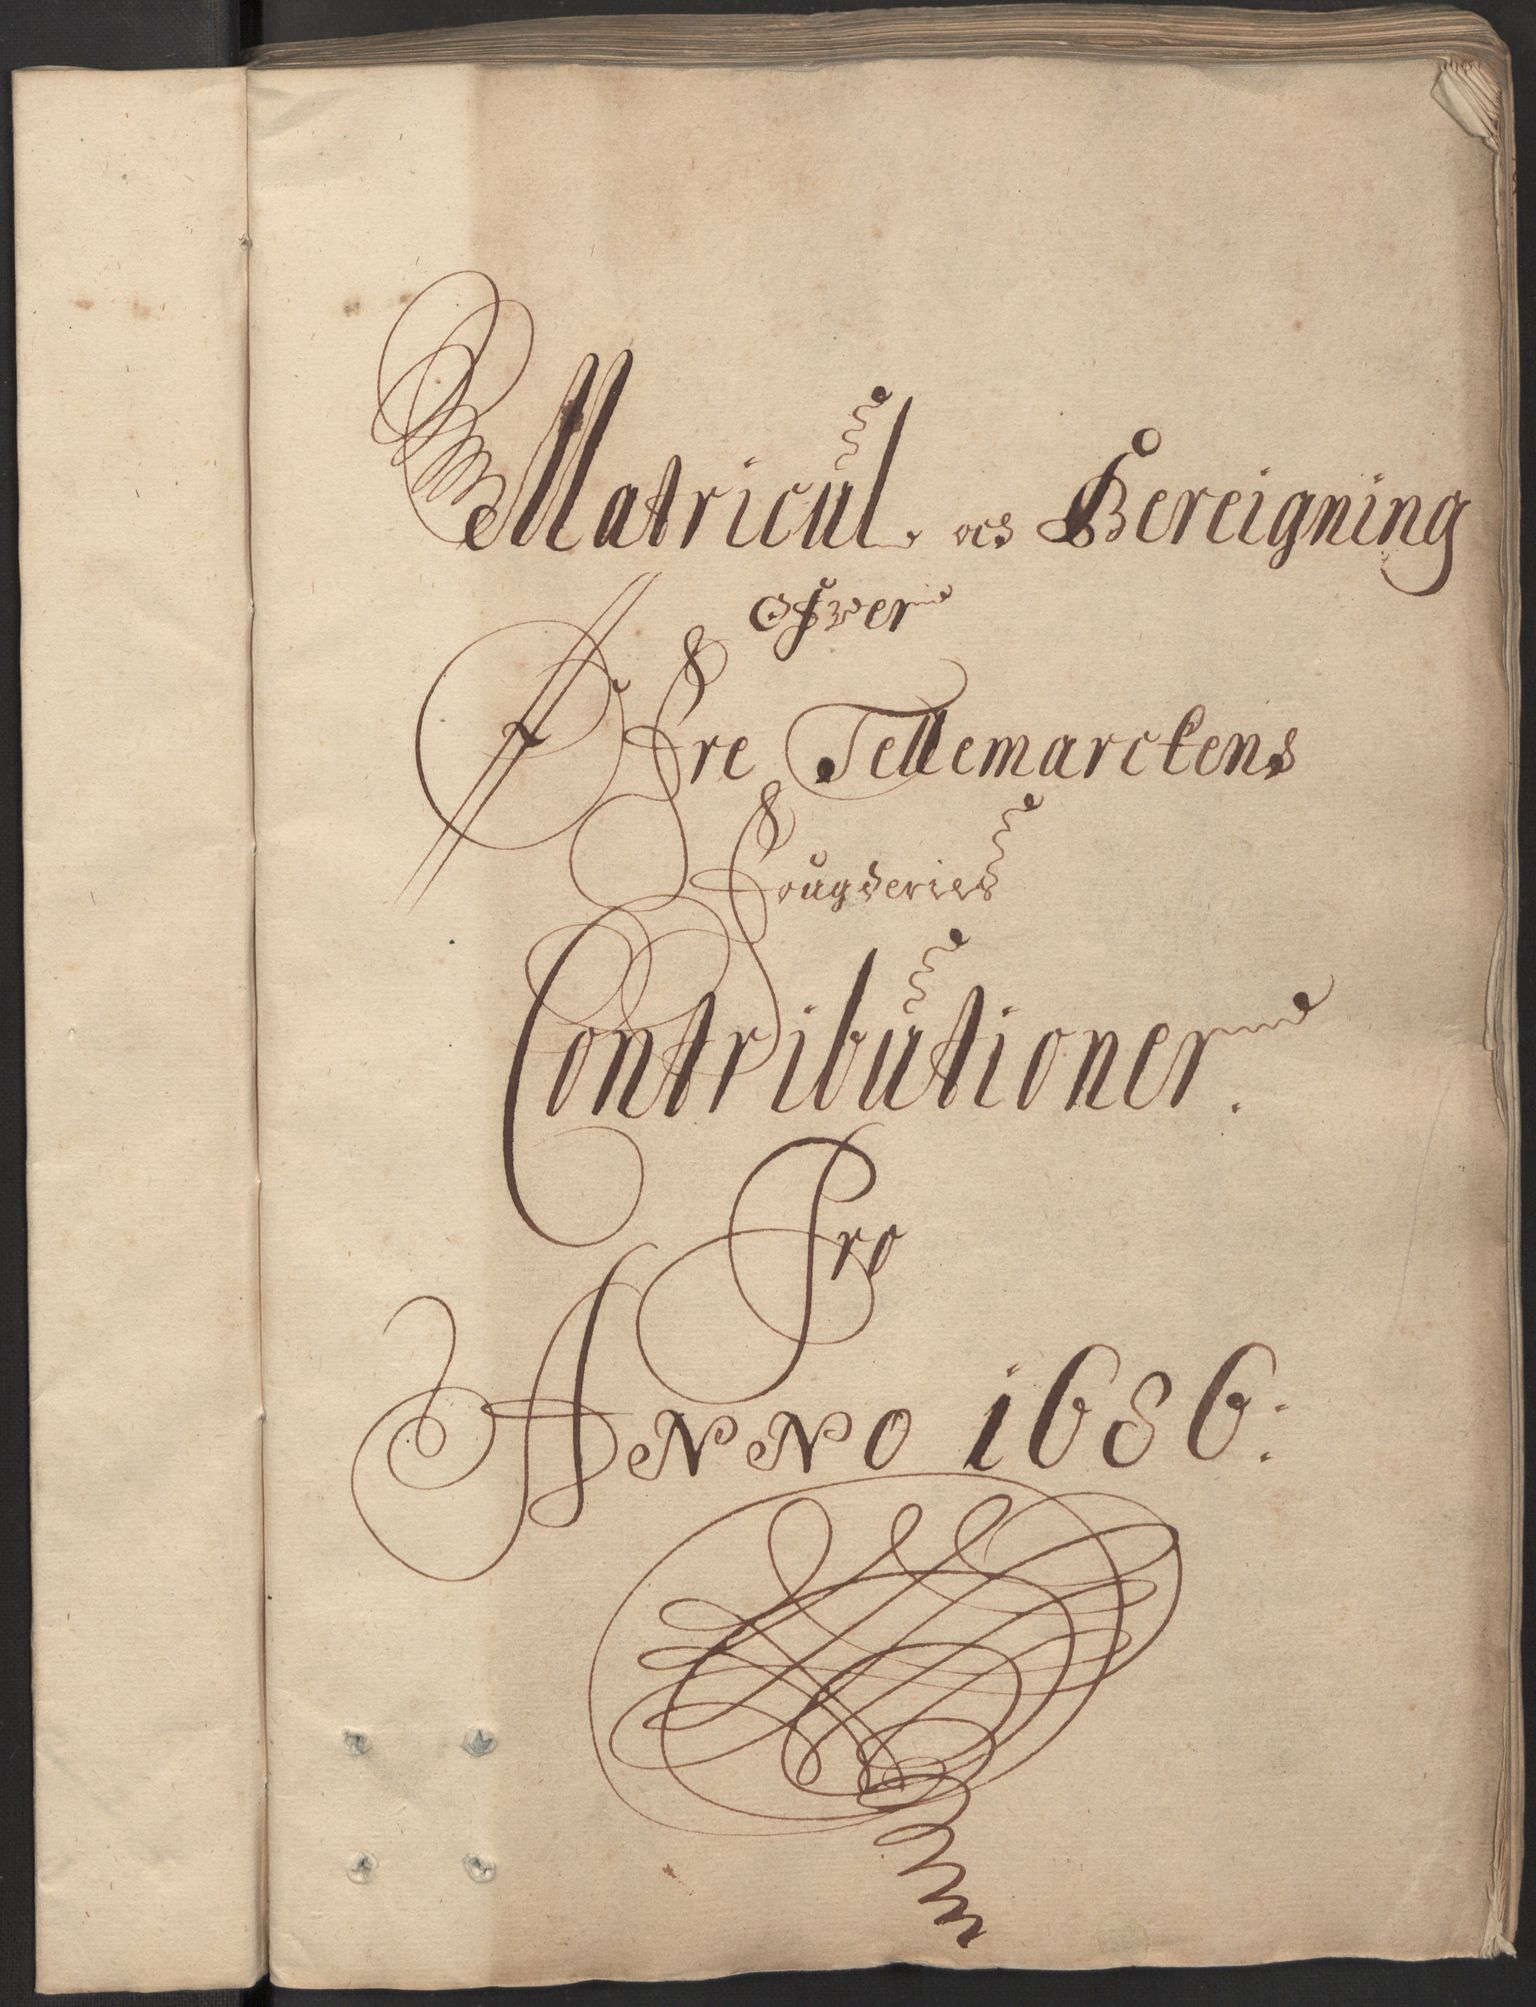 Matricul och Bereigning
Ofver
Øfre Tellemarckens
Fougderies
Contributioner.
Pro
Anno 1686: